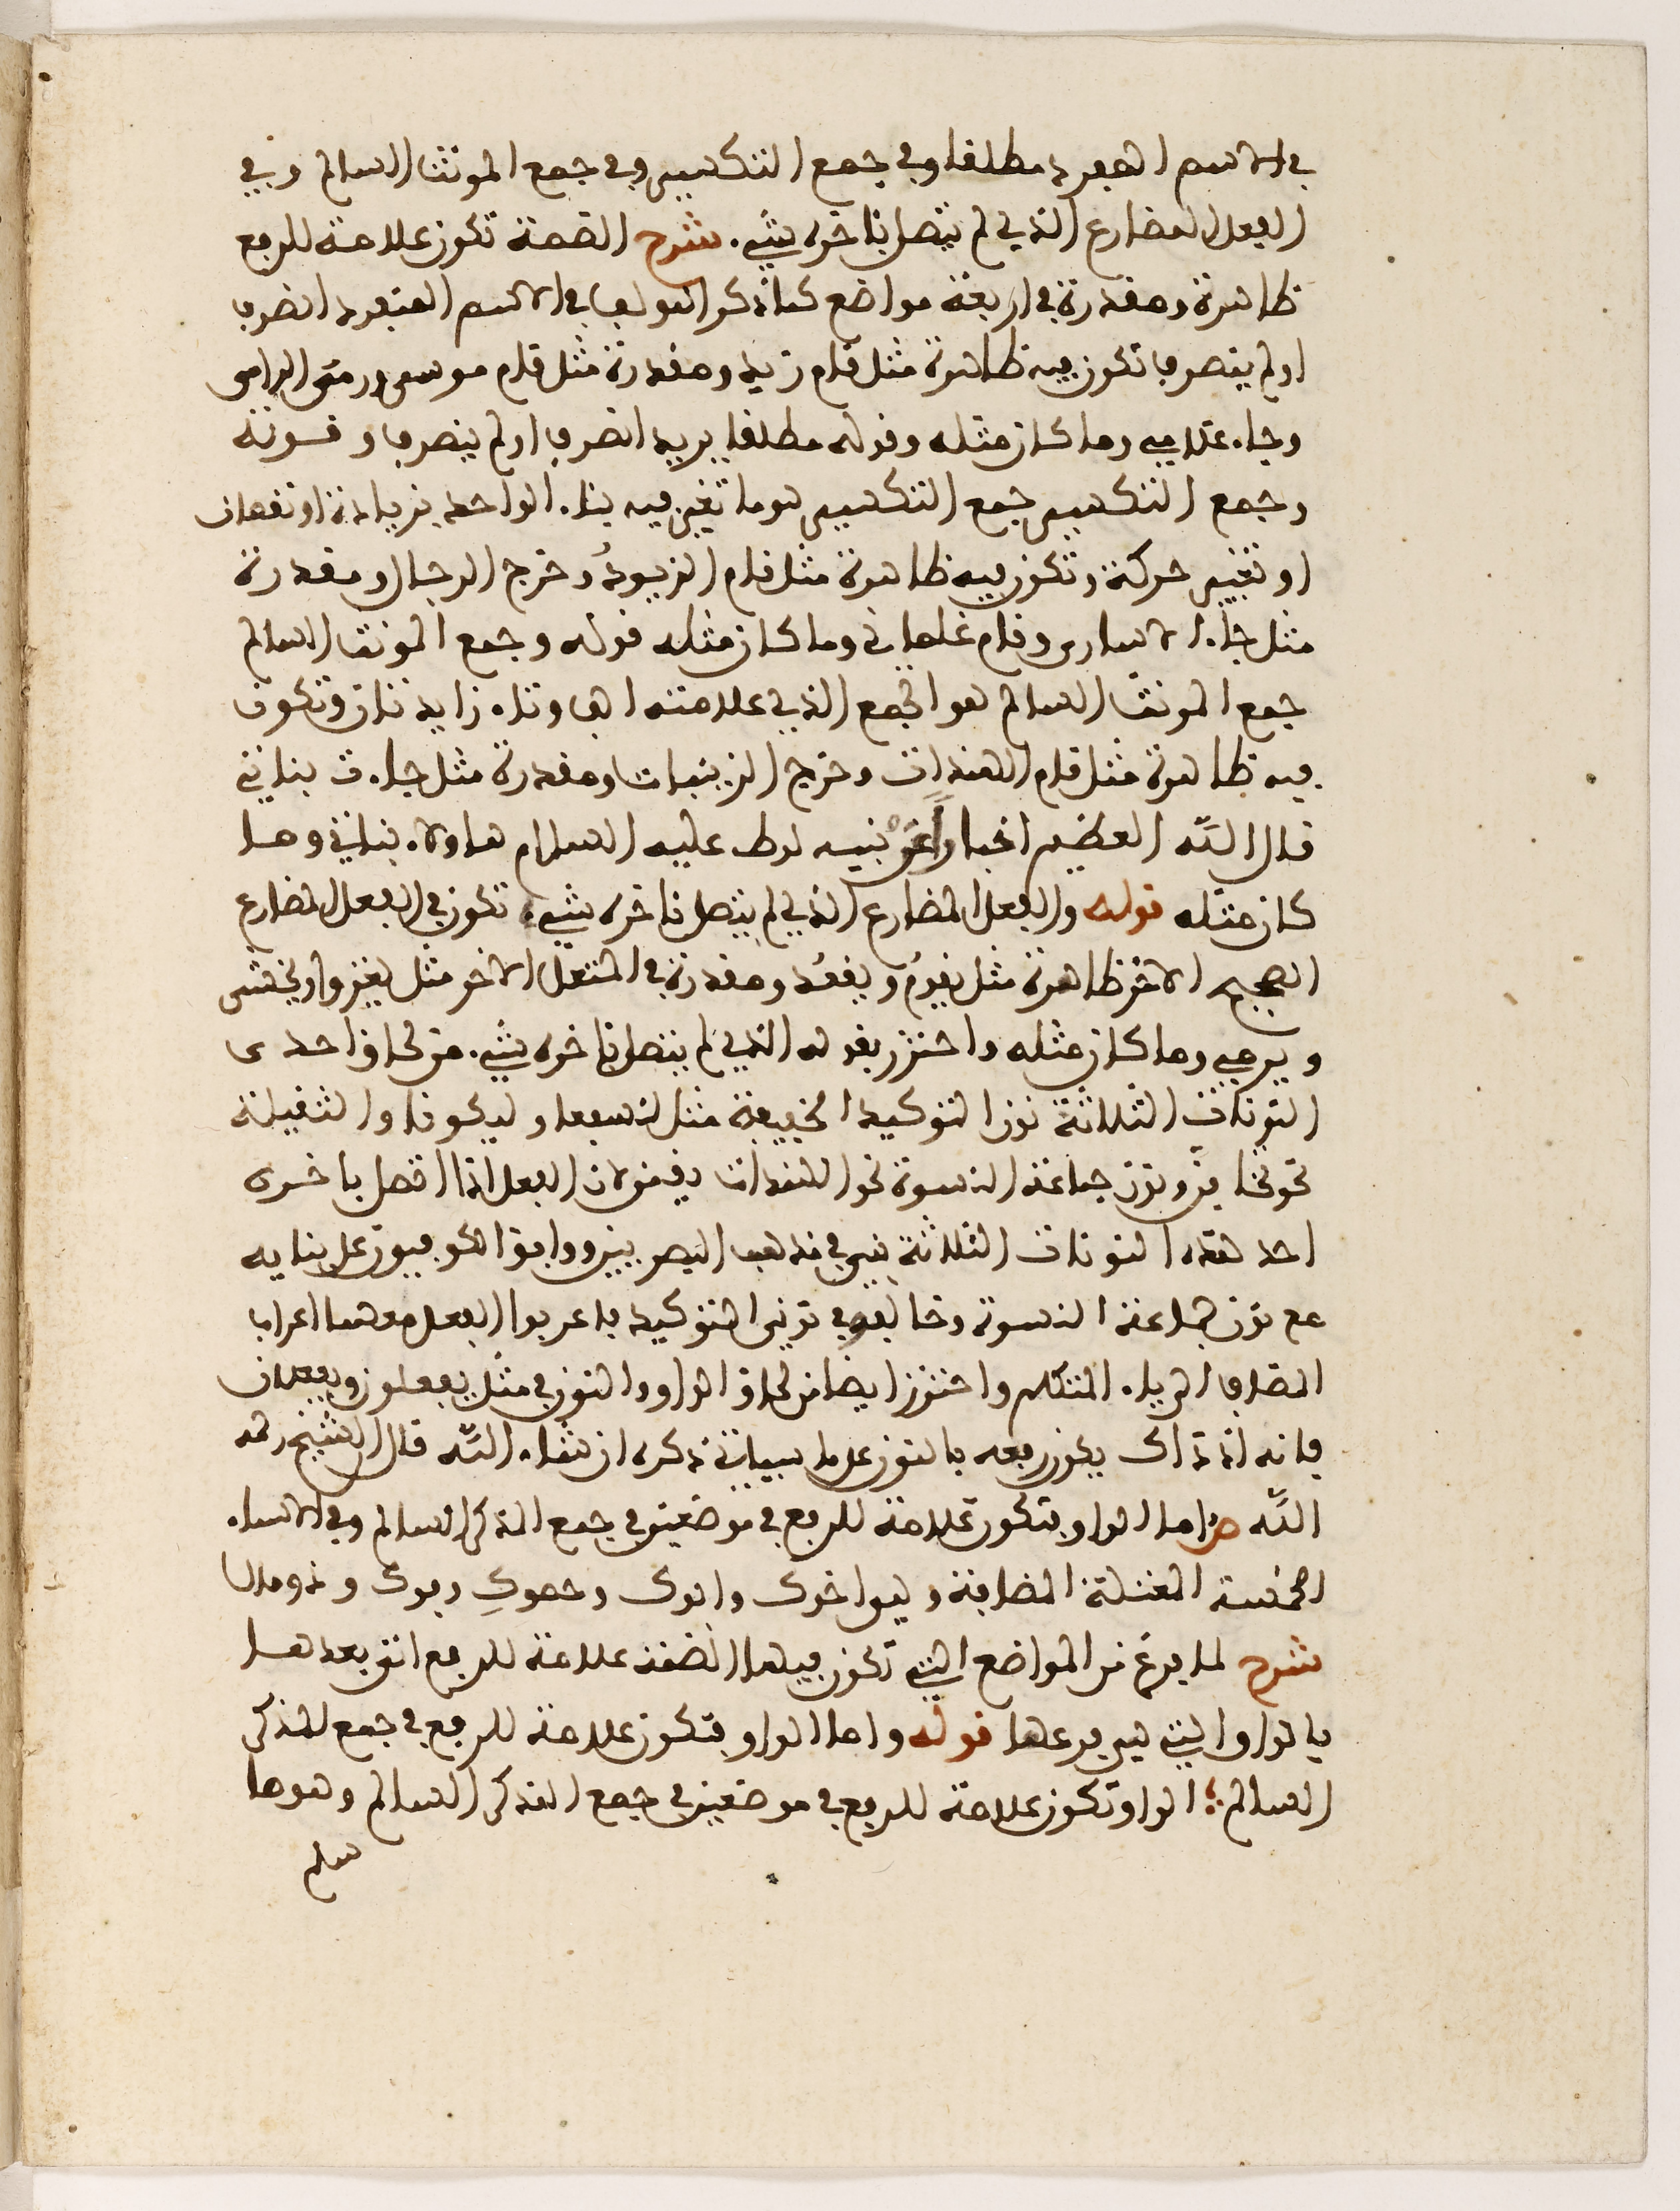 في الاسم المفرد مطلقا وفي جمع التكسير وفي جمع المونث السالم وفي
الفعل المضارع الذي لم يتصل باخره شيء. شرح الضمة تكون علامة للرفع
ظاهرة ومقدرة في اربعة مواضع كما ذكر المولف في الاسم المفرد انصرف
او لم ينصرف تكون فيه ظاهرة مثل قام زيد ومقدرة مثل قام موسى ورمى الرامي
وجاء غلامي وما كان مثله وقوله مطلقا يريد انصرف او لم ينصرف وقوله
وجمع التكسير جمع التكسير هو ما تغير فيه بناء الواحد بزيادة او نقصان
او تغيير حركة وتكون فيه ظاهرة مثل قام الزيودُ وخرج الرجال ومقدرة
مثل جاء الاسارى وقام غلماني وما كان مثله قوله وجمع المونث السالم
جمع المونث السالم هو الجمع الذي علامته الف وتاء زايدتان وتكون
فيه ظاهرة مثل قام الهندات وخرج الزينبات ومقدرة مثل جاءت بناتي
قال الله العظيم اخبارا عن نبيه لوط عليه السلام هاولاء بناتي وما
كان مثله قوله والفعل المضارع الذي لم يتصل باخره شيء تكون في الفعل المضارع
الصحيح الاخر ظاهرة مثل يقومُ ويقعُد ومقدرة في المعتل الاخر مثل يغزوا ويخشى
ويرمي وما كان مثله واحترز بقوله الذي لم يتصل باخره شيء. من لحاق احدى
النونات الثلاثة نون التوكيد الخفيفة مثل لنسفعا وليكونا والثقيلة
نحو فإما ترين ونون جماعة النسوة نحو الهندات يقمن لان الفعل اذا اتصل باخره
احد هذه النونات الثلاثة بني في مذهب البصريين ووافق الكوفيون على بنايه
مع نون جماعة النسوة وخالفوا في نوني التوكيد فاعربوا الفعل معهما اعراب
المضاف الى ياء المتكلم واحترز ايضا من لحاق الواو والنون في مثل يفعلون ويفعلان
فانه اذ ذاك يكون رفعه بالنون على ما سياتي ذكره ان شاء الله قال الشيخ رحمه
الله ص واما الواو فتكون علامة للرفع في موضعين في جمع المذكر السالم وفي الاسماء
الخمسة المعتلة المضافة وهي اخوك وابوك وحموكِ وفوك وذو مال
شرح لما فرغ من المواضع التي تكون فيها الضمة علامة للرفع اتى بعدها
بالواو التي هي فرعها قوله واما الواو فتكون علامة للرفع في جمع المذكر
السالم؛ الواو تكون علامة للرفع في موضعين في جمع المذكر السالم وهو ما
سلم